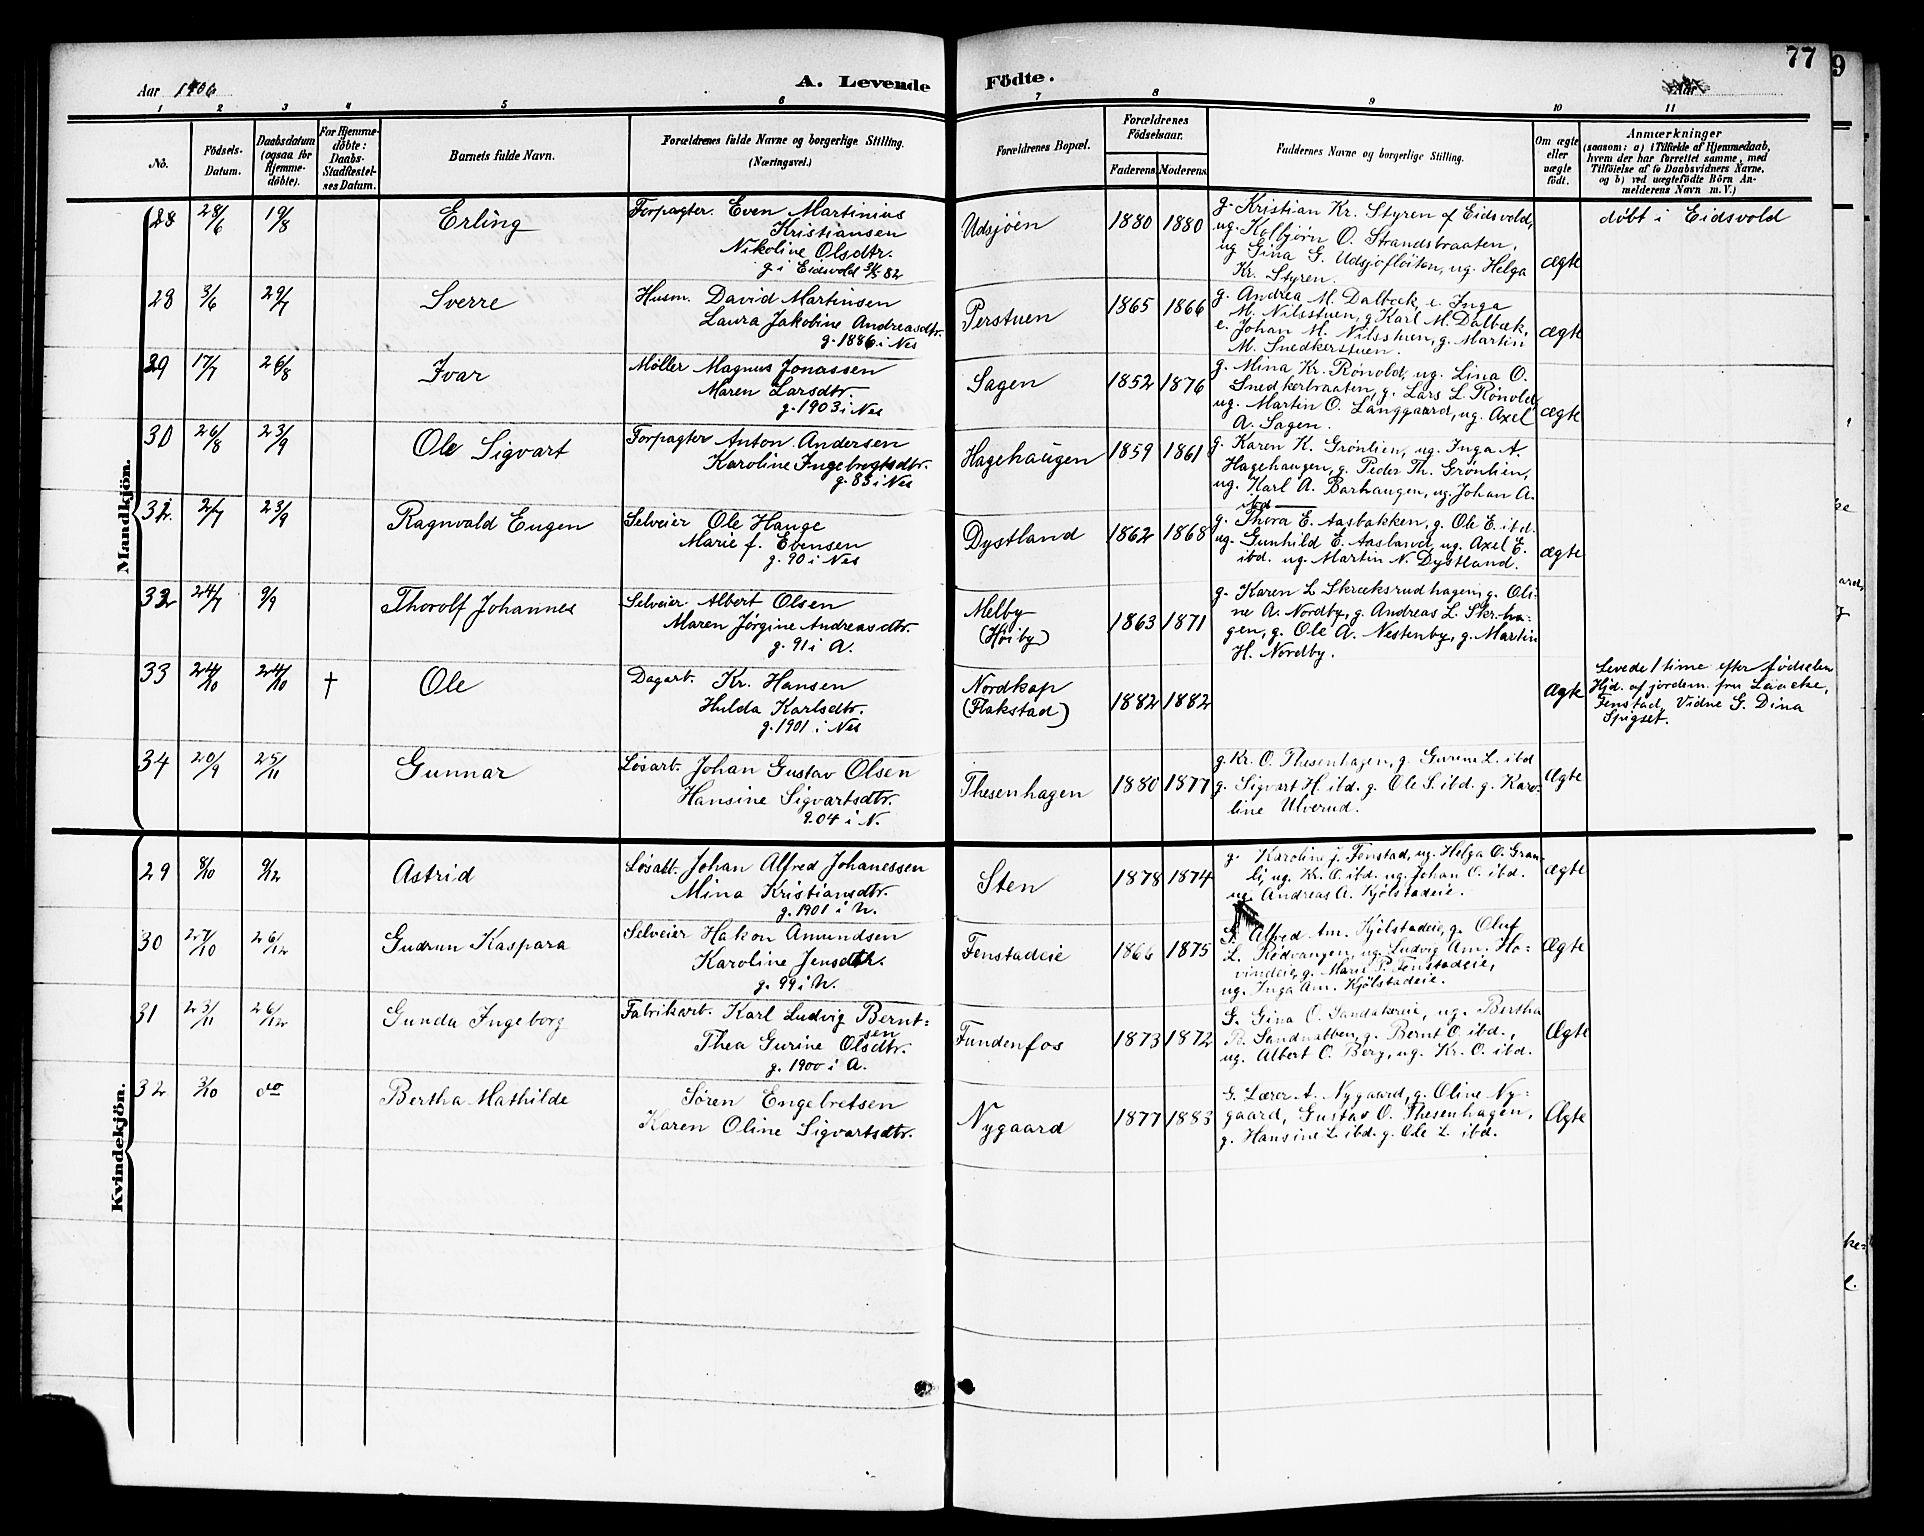 77
9
Aar 1906
A. Levende Födte.
Aar
1 2 3 4 5 6 7 8 9 10 11
No.
Födsels-Datum.
Daabsdatum (ogsaa for Hjemme-døbte).
For Hjemme-døbte: Daabs-Stadfæstel-ses Datum.
Barnets fulde Navn.
Forældrenes fulde Navne og borgerlige Stilling.
(Næringsvei.)
Forældrenes Bopæl.
Forældrenes Födselsaar.
Faderens. Moderens.
Faddernes Navne og borgerlige Stilling.
Om ægte eller uægte født.
Anmærkninger
(saasom: a) i Tilfælde af Hjemmedaab,
hvem der har forrettet samme, med
Tilføielse af to Daabsvidners Navne.
og b) ved uægtefødte Börn An-
melderens Navn m. V.)
Mandkjön.
28 28/6 19/8 Erling
Forpagter. Even Martinius
Kristiansen
Nikoline Olsdtr.
g. i Eidsvold
Udsjöen 1880 1880
g. Kristian Kr. Styren af Eidsvold,
ug. Kolbjørn O. Strandsbraaten,
ug Gina G. Udsjøfløiten, ug. Helga
Kr. Styren.
Ægte
døbt i Eidsvold
28 3/6 29/7 Sverre
Husm. David Martinsen
Laura Jakobine Andreasdtr.
g. 1886 i Nes
Perstuen 1865 1866
g. Andrea M. Dalbæk, e. Inga
M. Nilsstuen, g Karl M. Dalbæk,
e. Johan M. Nilsstuen, g. Martin
M. Snedkerstuen.
Ægte
29 17/7 26/8 Ivar
Møller Magnus Jonassen
Maren Larsdtr.
g. 1903 i Nes
Sagen 1852 1876
g. Mina Kr. Rønold, ug. Lina O.
Snedkerbraaten, g. Lars L. Rønold,
ug. Martin O. Langgaard, ug. Axel
A. Sagen.
Ægte
30 26/8 23/9 Ole Sigvart
Forpagter Anton Andersen
Karoline Ingebregtsdtr.
g. 83 i Nes
Hagehaugen 1859 1861
g. Karen K. Grønlien, ug. Inga A.
Hagehaugen, g. Peder Th. Grønlien,
ug. Karl A. Barhaugen, ug. Johan A.
ibd
31. 2/7 23/9 Ragnvald Eugen
Selveier Ole Hauge
Marie f. Evensen
g. 90 i Nes
Dystland 1862 1868
g. Thora E. Aasbakken, g. Ole E. ibd.
ug. Gunhild E. Aasbarud, ug. Axel E.
ibd. ug. Martin N. Dystland.
ægte
32 24/7 9/9 Thorolf Johannes
Selveier Albert Olsen
Maren Jørgine Andreasdtr.
g. 91 i A.
Melby
(Høiby)
1863 1871
g. Karen L Skræksrudhagen, g. Oli-
ne A. Nordby, g. Andreas L. Skr-ha-
gen, g. Ole A. Nestenby, g. Martin
H. Nordby.
33 24/10 24/10 † Ole
Dagarb. Kr. Hansen
Hulda Karlsdtr.
g. 1901 i Nes
Nordkap
(Flakstad)
1882 1882
Ægte
Levede 1 time efter fødselen
Hjd. af jordem. fru Laacke,
Fenstad, Vidne G. Dina
Spigset.
34 20/9 25/11 Gunnar
Løsarb. Johan Gustav Olsen
Hansine Sigvartsdtr.
g. 04 i N.
Thesenhagen 1880 1877
g. Kr. O. Thesenhagen, g. Gurine L. ibd
g. Sigvart H. ibd. g. Ole S. ibd. g. Karo-
line Ulverud.
Ægte
Kvindekjön.
29 8/10 9/12 Astrid
Løsarb. Johan Alfred Johanessen
Mina Kristiansdtr.
g. 1901 i N.
Sten 1878 1874
g. Karoline J. Fenstad, ug. Helga O. Gran-
li, ug. Kr. O. ibd. ug. Johan O. ibd.
ug. Andreas A. Kjölstadeie.
Ægte
30 27/10 26/12 Gudrun Kaspara
Selveier Hakon Amundsen
Karoline Jensdtr.
g. 99 i N.
Fenstadeie 1866 1875
G. Alfred Am. Kjölstadeie, g. Oluf
L. Rödvangen, ug. Ludvig Am. Ho-
vindeie, g. Marie P. Fenstadeie,
ug. Inga Am. Kjölstadeie.
Ægte
31 23/11 26/12 Gunda Ingeborg
Fabrikarb. Karl Ludvig Bernt=
sen
Thea Gurine Olsdtr.
g. 1900 i A.
Fundenfos 1873 1872
G. Gina O. Sandakereie, ug. Bertha
B. Sandnabben, g. Bernt O. ibd.,
ug. Albert O. Berg, ug. Kr. O. ibd.
Ægte
32 3/10 do Bertha Mathilde
Søren Engebretsen
Karen Oline Sigvartsdtr.
Nygaard 1877 1883
G. Lærer A. Nygaard, g. Oline Ny=
gaard, Gustav O. Thesenhagen,
g. Hansine L. ibd. g. Ole L. ibd.
Ægte